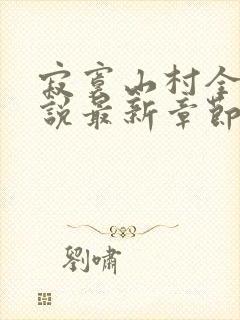 寂寞山村全
說最新章節
劉嘯